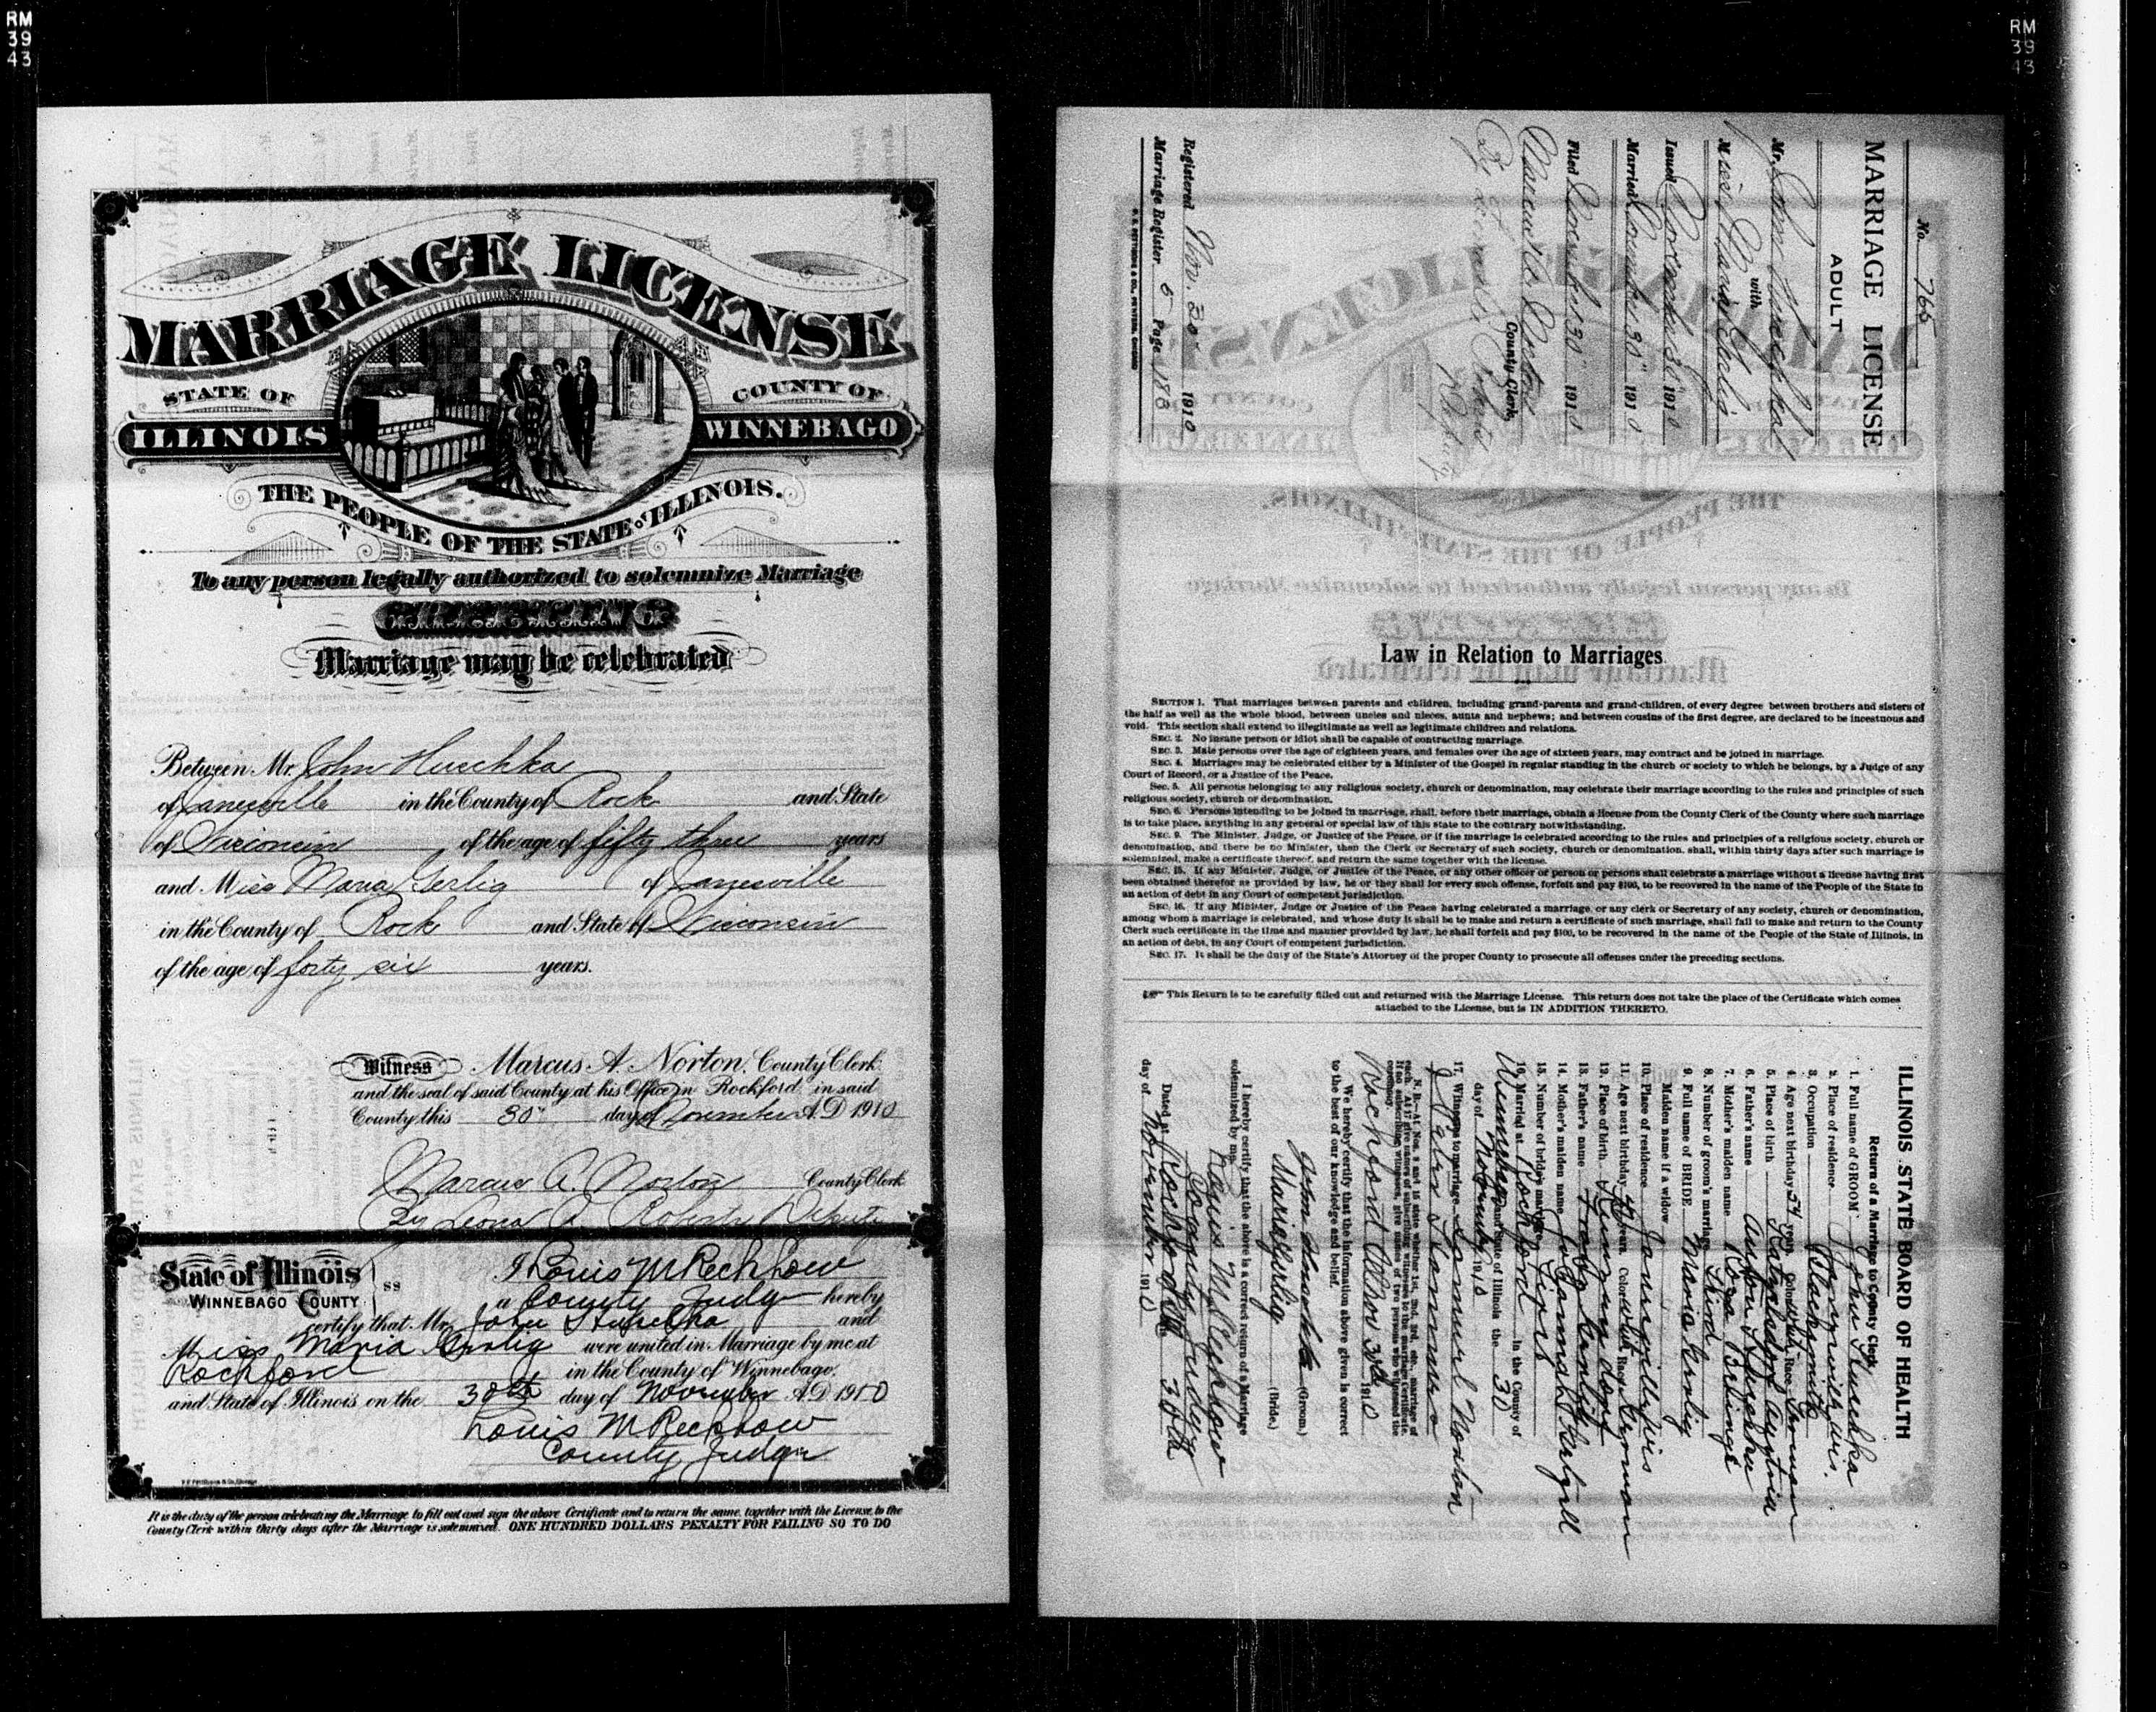 RM
39
43
MARRIAGE LICENSE
STATE OF
ILLINOIS
COUNTY OF
WINNEBAGO
THE PEOPLE OF THE STATE OF ILLINOIS.
To any person legally authorized to solemnize Marriage
GREETING
Marriage may be celebrated
Between Mr. John Hueshka
of Janesville in the County of Rock and State
of Wisconsin of the age of fifty three years
and Miss Maria Gerlig of Janesville
in the County of Rock and State of Wisconsin
of the age of forty six years.
Witness Marcus A. Norton, County Clerk
and the seal of said County at his Office in Rockford in said
County this 30" day of November A.D. 1910
Marcus A. Norton County Clerk
By Leona A. Roberts Deputy
State of Illinois
WINNEBAGO COUNTY ss
I Louis M Reckhow
a County Judge hereby
certify that Mr. John Hueshka and
Miss Maria Gerlig were united in Marriage by me at
Rockford in the County of Winnebago,
and State of Illinois on the 30th day of November A.D. 1910
Louis M Reckhow
County Judge
It is the duty of the person celebrating the Marriage to fill out and sign the above Certificate and to return the same, together with the License, to the
County Clerk within thirty days after the Marriage is solemnized. ONE HUNDRED DOLLARS PENALTY FOR FAILING SO TO DO
RM
39
43
No. 766
MARRIAGE LICENSE
ADULT
Mr. John Hueshka
with
Miss Maria Gerlig
Issued November 30" 1910
Married November 30" 1910
Filed November 30" 1910
Marcus A. Norton
County Clerk
By Leona A. Roberts
Deputy
Registered Nov. 30" 1910
Marriage Register 6 Page 188
Law in Relation to Marriages
SECTION 1. That marriages between parents and children, including grand-parents and grand-children, of every degree between brothers and sisters of
the half as well as the whole blood, between uncles and nieces, aunts and nephews; and between cousins of the first degree, are declared to be incestuous and
void. This section shall extend to illegitimate as well as legitimate children and relations.
SEC. 2. No insane person or idiot shall be capable of contracting marriage.
SEC. 3. Male persons over the age of eighteen years, and females over the age of sixteen years, may contract and be joined in marriage.
SEC. 4. Marriages may be celebrated either by a Minister of the Gospel in regular standing in the church or society to which he belongs, by a Judge of any
Court of Record, or a Justice of the Peace.
SEC. 5. All persons belonging to any religious society, church or denomination, may celebrate their marriage according to the rules and principles of such
religious society, church or denomination.
SEC. 6. Persons intending to be joined in marriage, shall, before their marriage, obtain a license from the County Clerk of the County where such marriage
is to take place, anything in any general or special law of this state to the contrary notwithstanding.
SEC. 9. The Minister, Judge, or Justice of the Peace, or if the marriage is celebrated according to the rules and principles of a religious society, church or
denomination, and there be no Minister, then the Clerk or Secretary of such society, church or denomination, shall, within thirty days after such marriage is
solemnized, make a certificate thereof, and return the same together with the license.
SEC. 15. If any Minister, Judge, or Justice of the Peace, or any other officer or person or persons shall celebrate a marriage without a license having first
been obtained therefor as provided by law, he or they shall for every such offense, forfeit and pay $100, to be recovered in the name of the People of the State in
an action of debt in any Court of competent jurisdiction.
SEC. 16. If any Minister, Judge or Justice of the Peace having celebrated a marriage, or any clerk or Secretary of any society, church or denomination,
among whom a marriage is celebrated, and whose duty it shall be to make and return a certificate of such marriage, shall fail to make and return to the County
Clerk such certificate in the time and manner provided by law, he shall forfeit and pay $100, to be recovered in the name of the People of the State of Illinois, in
an action of debt, in any Court of competent jurisdiction.
SEC. 17. It shall be the duty of the State's Attorney of the proper County to prosecute all offenses under the preceding sections.
This Return is to be carefully filled out and returned with the Marriage License. This return does not take the place of the Certificate which comes
attached to the License, but is IN ADDITION THERETO.
ILLINOIS STATE BOARD OF HEALTH
Return of a Marriage to County Clerk
1. Full name of GROOM John Hueshka
2. Place of residence Janesville Wis.
3. Occupation Blacksmith
4. Age next birthday 54 years Color White Race German
5. Place of birth Austria
6. Father's name Anton Hueshka
7. Mother's maiden name Rosa
8. Number of groom's marriage Third
9. Full name of BRIDE Maria Gerlig
Maiden name if a widow
10. Place of residence Janesville Wis
11. Age next birthday 47 years Color White Race German
12. Place of birth Germany
13. Father's name
14. Mother's maiden name Johannah
15. Number of bride's marriage First
16. Married at Rockford in the County of
Winnebago and State of Illinois the 30
day of November 1910
17. Witnesses to marriage Samuel
We hereby certify that the information above given is correct
to the best of our knowledge and belief.
Rockford Ill Nov 30th 1910
John Hueshka (Groom)
Maria Gerlig (Bride.)
I hereby certify that the above is a correct return of a Marriage
solemnized by me
Louis M Reckhow
County Judge
Dated at Rockford Ill 30th
day of November 1910